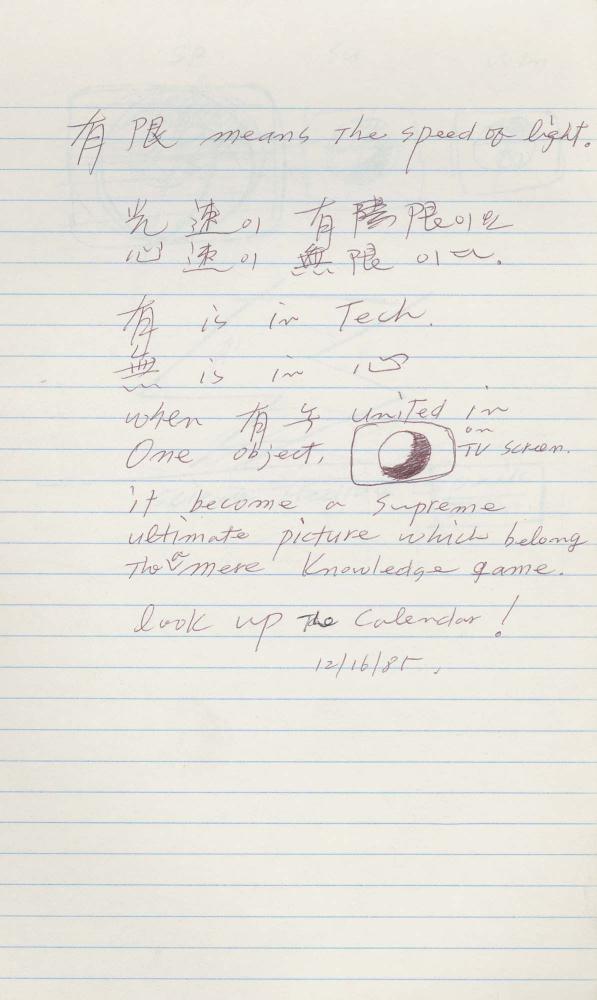 有限 means The speed of light.
光速이 有限이면
心速이 無限이다.
有 is in Tech.
無 is in 心
when 有 united in
One object, on
TV screen.
it become a supreme
ultimate picture which belong
Tho a mere Knowledge game.
look up The Calendar!
12/16/85.